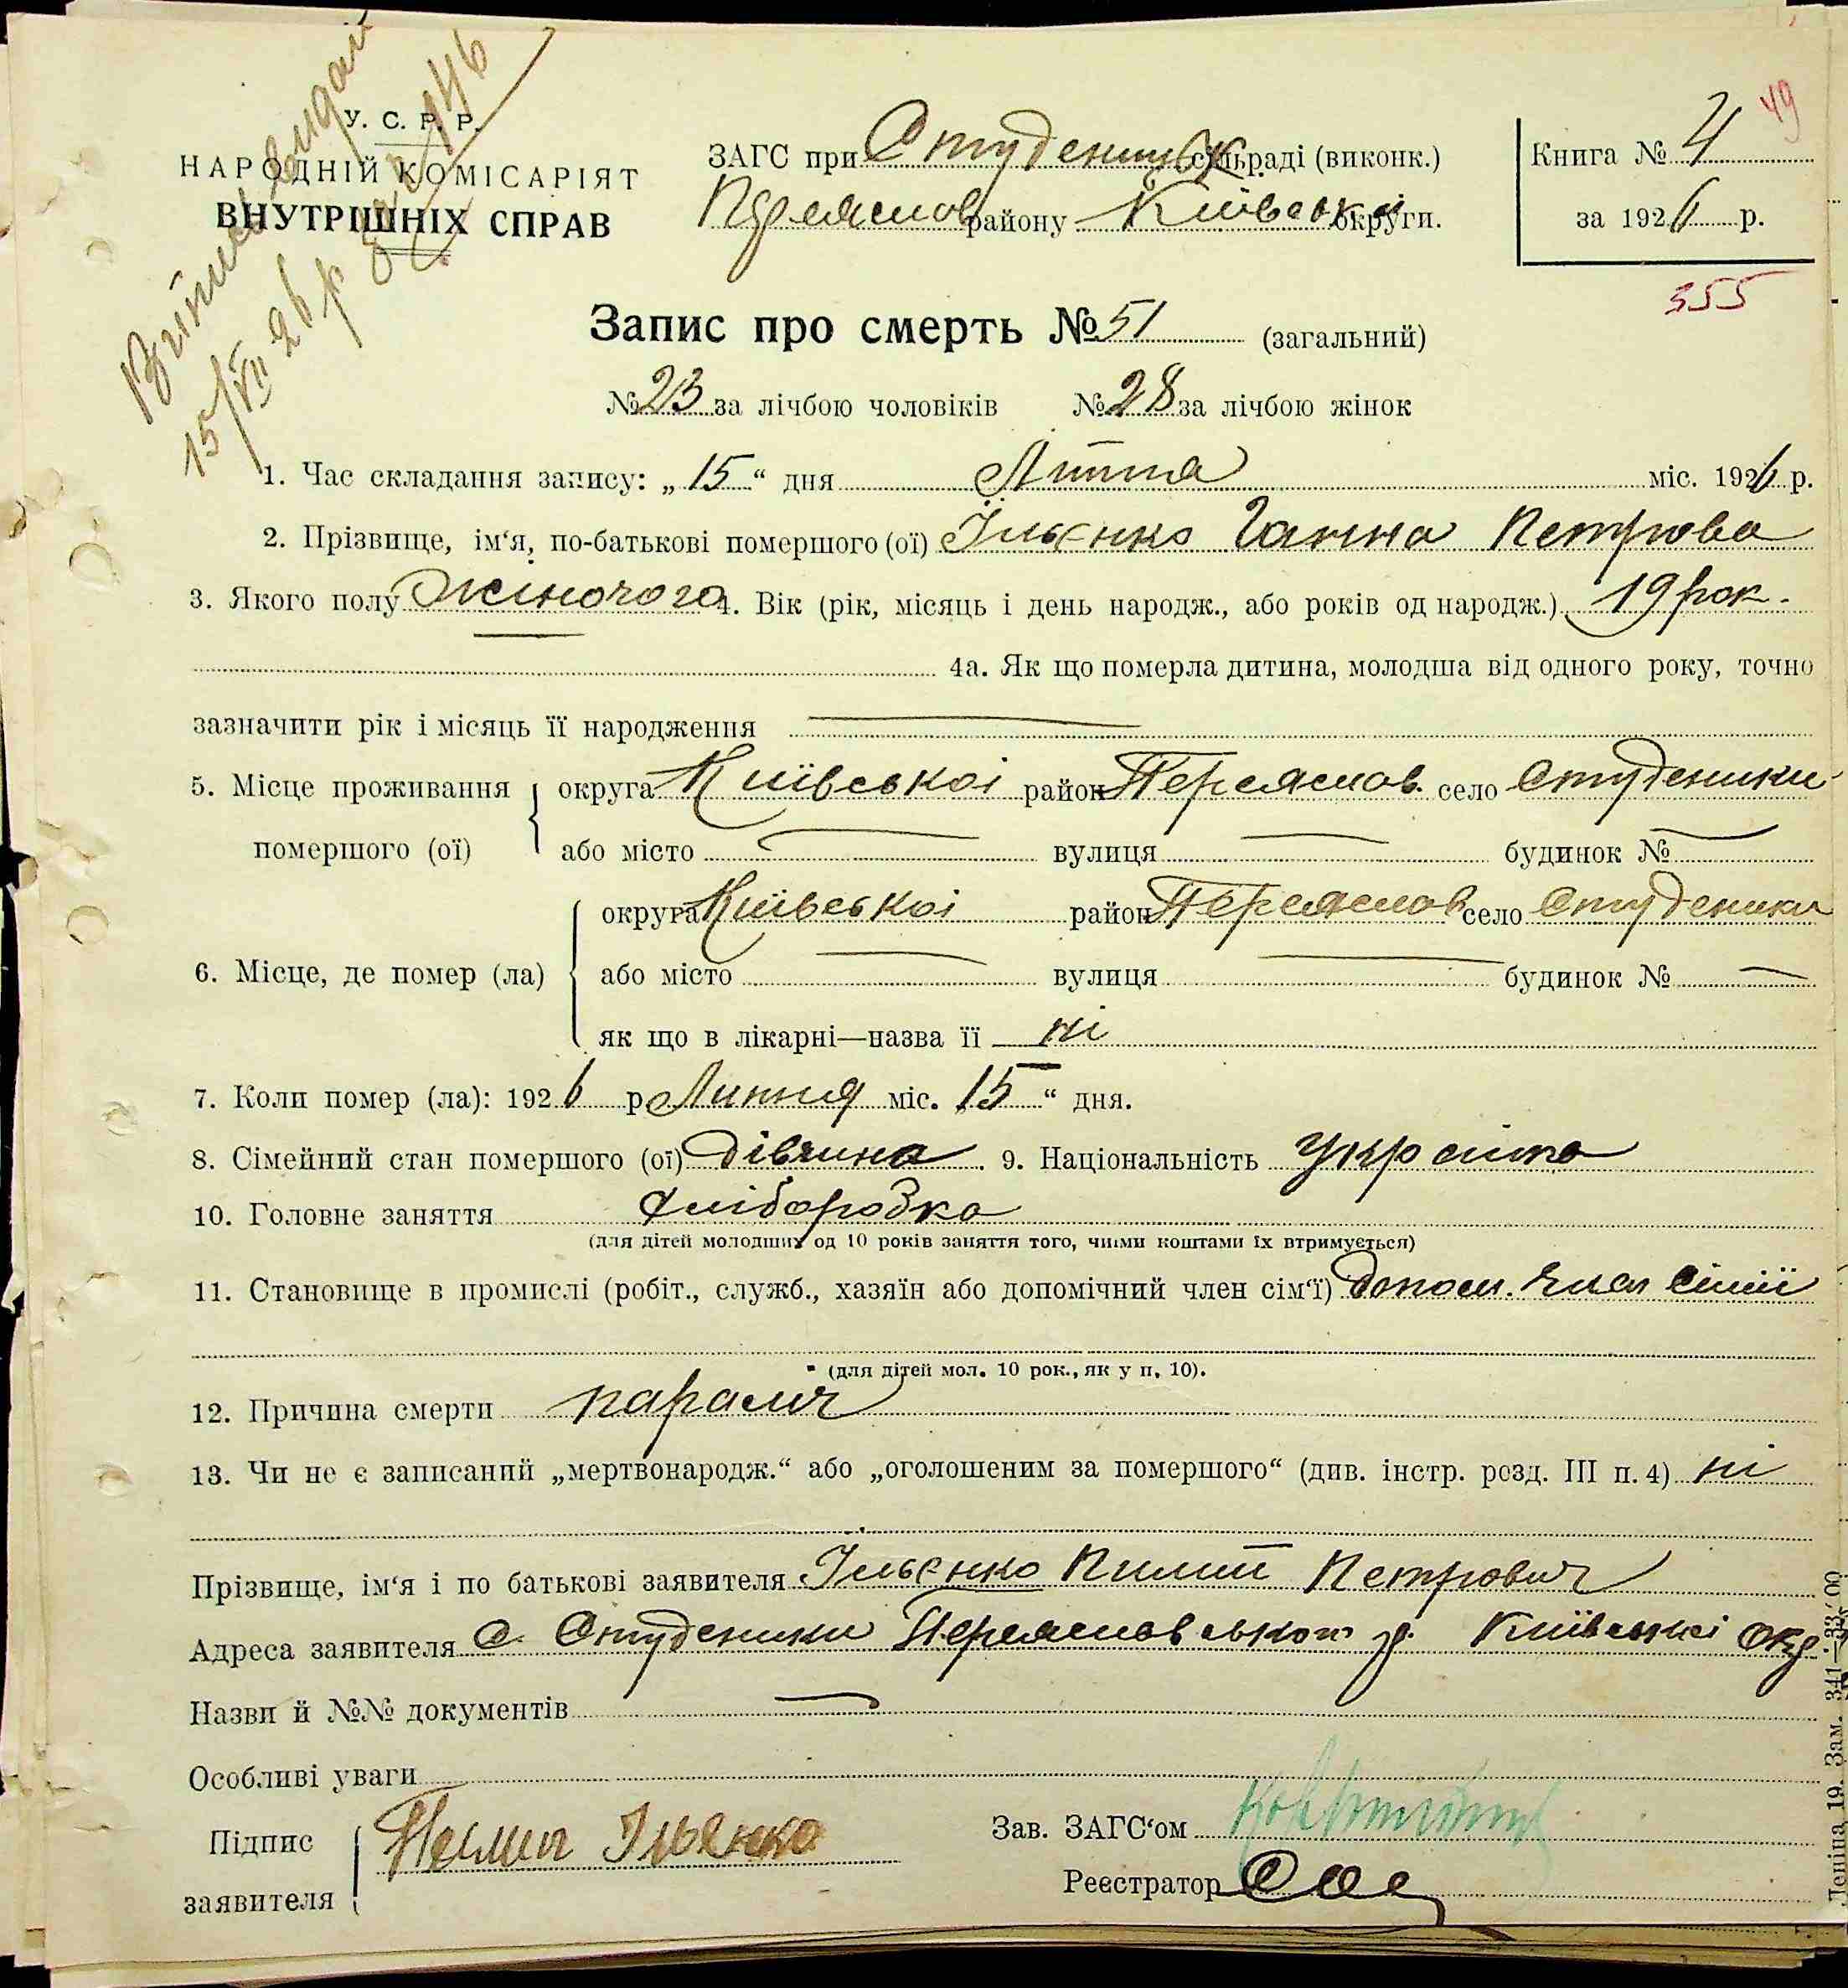 У. С. Р. Р.
НАРОДНІЙ КОМІСАРІЯТ
ВНУТРІШНІХ СПРАВ
Витяг видан
15/VII 26 р
ЗАГС при Студениць. сільраді (виконк.)
Переяслов району Київськоі округи.
Книга № 4
за 1926 р.
49
355
Запис про смерть № 51 (загальний)
№ 23 за лічбою чоловіків № 28 за лічбою жінок
1. Час складання запису: „15“ дня Липня міс. 1926 р.
2. Прізвище, ім‘я, по-батькові помершого (ої) Ільєнко Ганна Петрова
3. Якого полу Жіночого 4. Вік (рік, місяць і день народж., або років од народж.) 19 рок.
4а. Як що померла дитина, молодша від одного року, точно
зазначити рік і місяць її народження —
5. Місце проживання округа Київськоі район Переяслов. село Студеники
помершого (ої) або місто — вулиця — будинок № —
округа Київськоі район Переяслов село Студеники
6. Місце, де помер (ла) або місто — вулиця — будинок № —
як що в лікарні—назва її ні
7. Коли помер (ла): 1926 р. Липня міс. „15“ дня.
8. Сімейний стан помершого (ої) дівчина. 9. Національність
10. Головне заняття Хліборобка
(для дітей молодших од 10 років заняття того, чиїми коштами їх втримується)
11. Становище в промислі (робіт., служб., хазяїн або допомічний член сім‘ї) допом. член сімії
(для дітей мол. 10 рок., як у п. 10).
12. Причина смерти параліч
13. Чи не є записаний „мертвонародж.“ або „оголошеним за помершого“ (див. інстр. розд. III п. 4) ні
Прізвище, ім‘я і по батькові заявителя Ільєнко Пилип Петрович
Адреса заявителя С. Студеники Переясловського р. Київськоі окр
Назви й №№ документів —
Особливі уваги
Підпис
заявителя Ільєнко
Зав. ЗАГС‘ом
Реєстратор
Леніна 19. Зам. 341—33/00